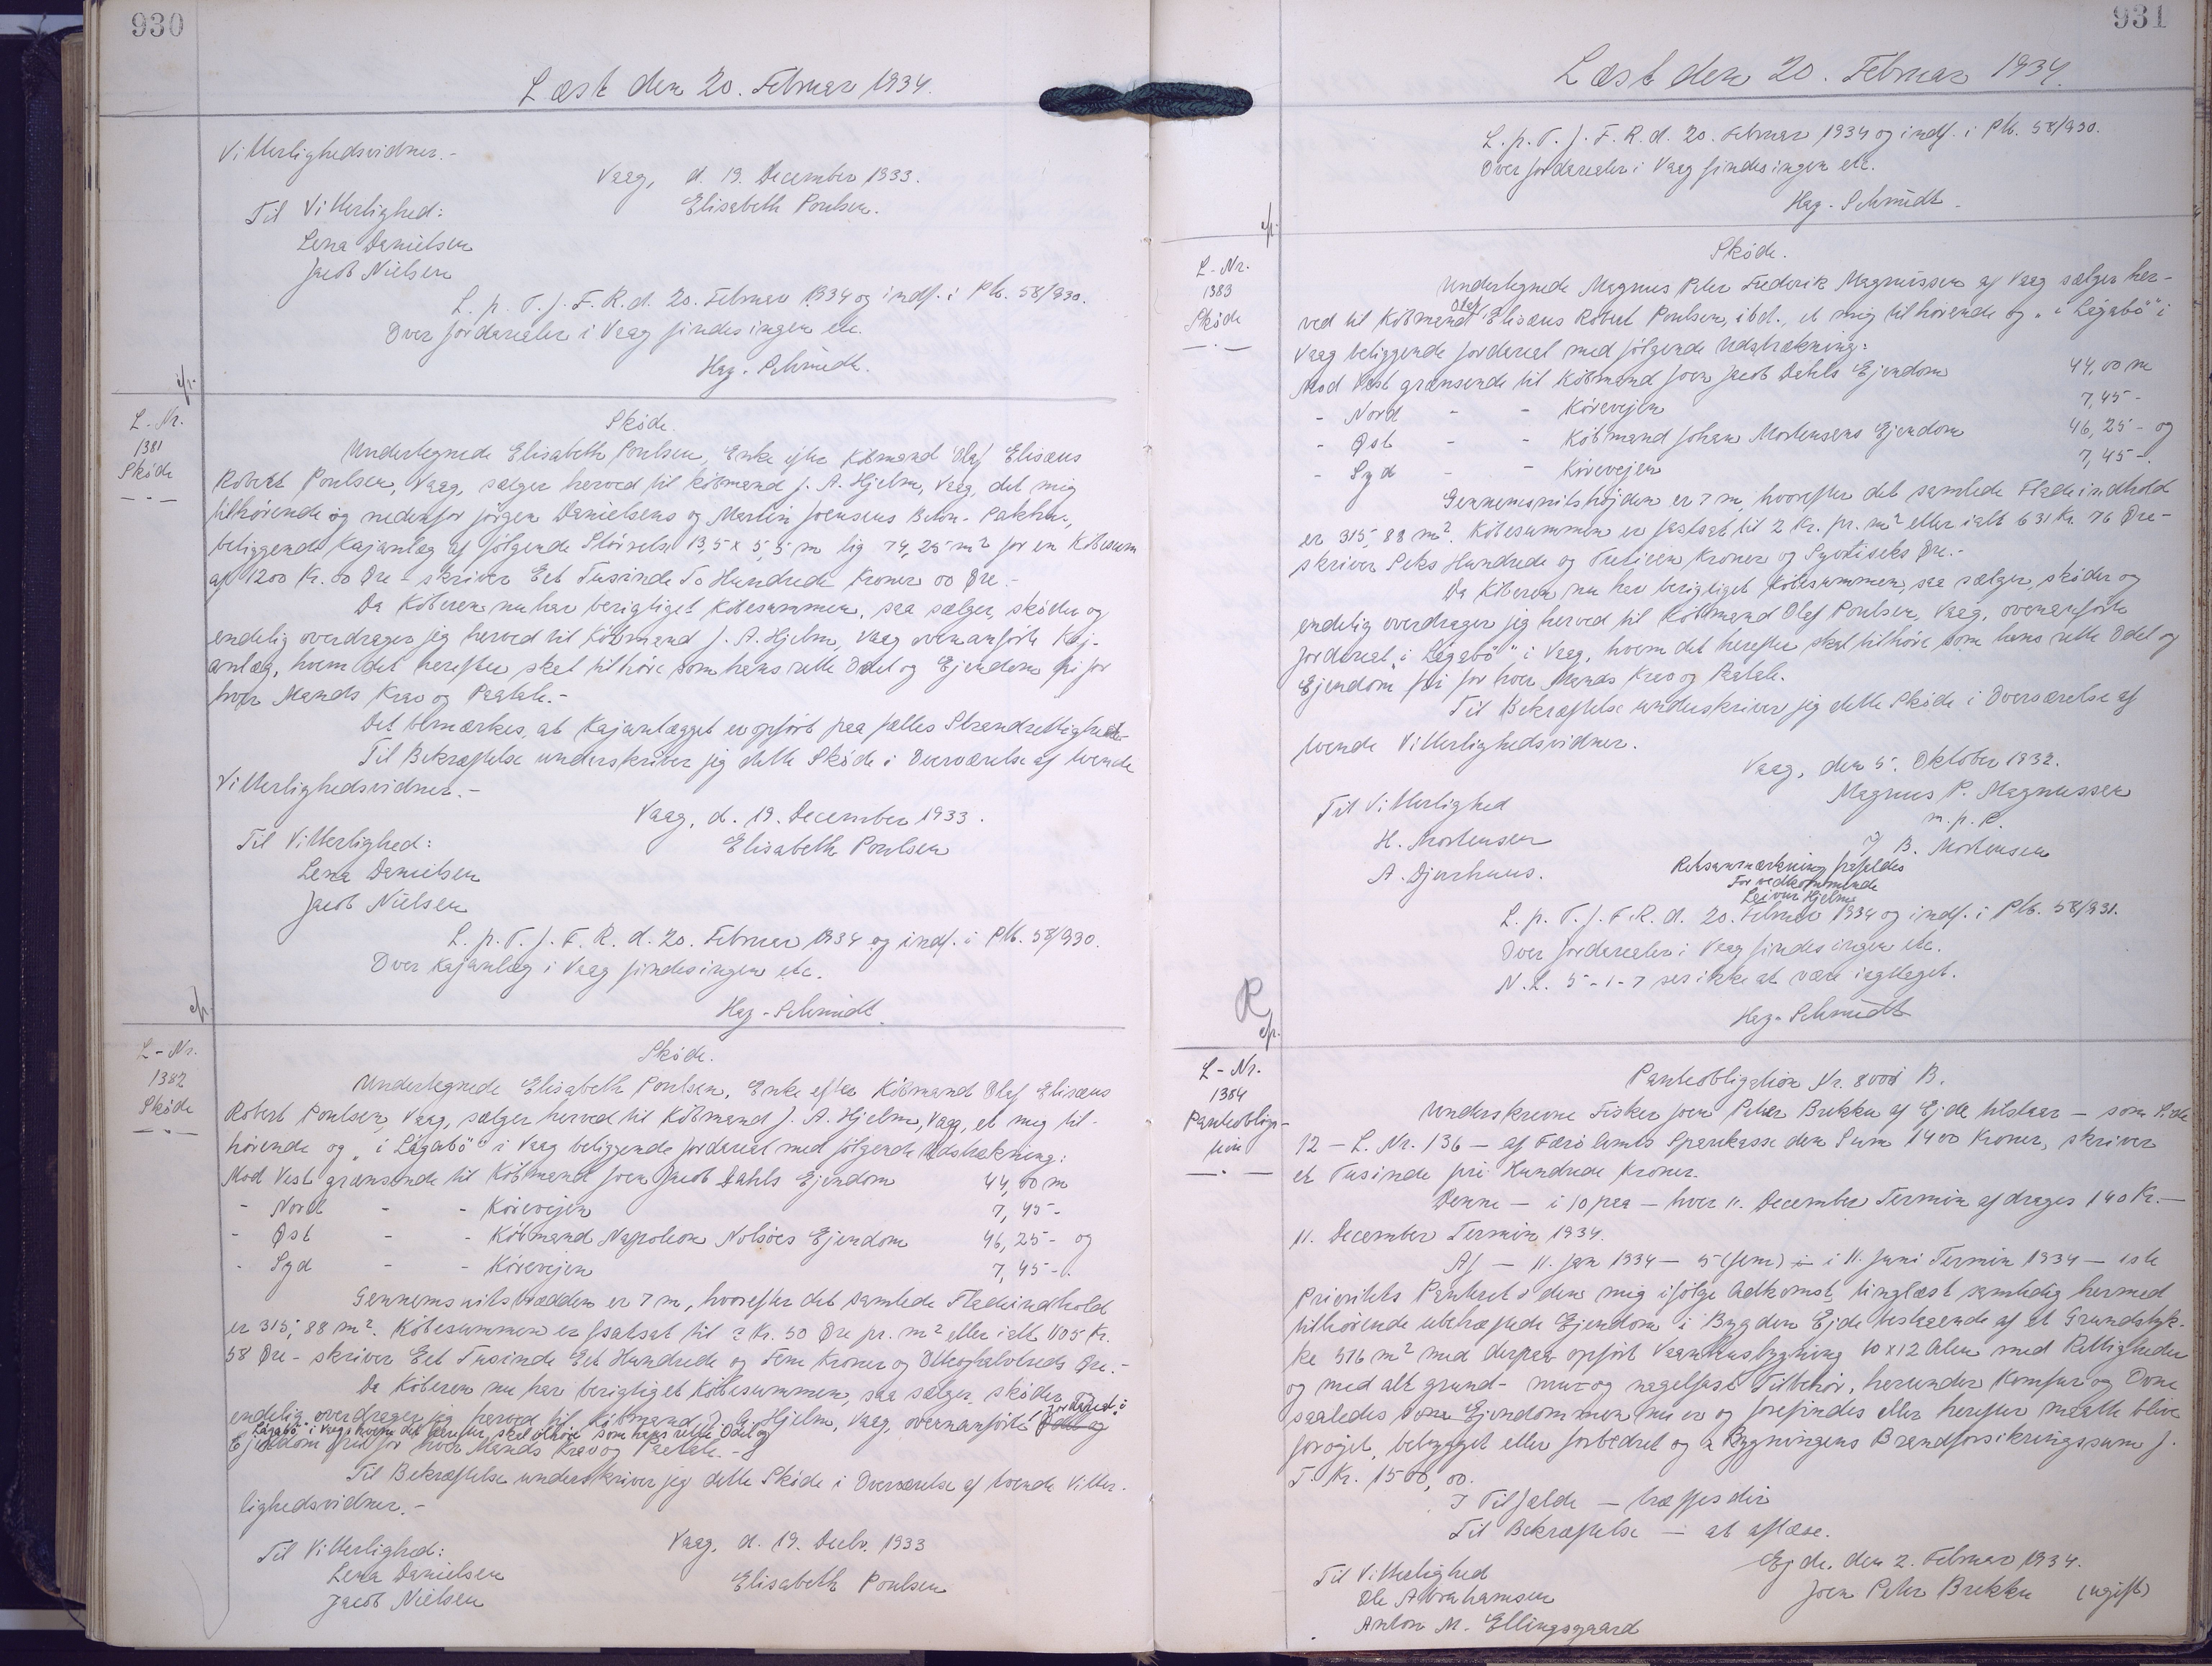 930
Læst den 20. Februar 1934.
Vitterlighedsvidner.-
Vaag, d. 19. December 1933.
Til Vitterlighed:
Elisabeth Poulsen.
Lena Danielsen
Jacob Nielsen
L. p. T. f. F. R. d. 20. Februar 1934 og indf. i Pb. 58/930.
Over Jordarealer i Vaag findes ingen etc.
Hag. Schmidt.
L. Nr.
1381
Skøde
Skøde.
Undertegnede Elisabeth Poulsen, Enke efter Købmand Olaf Elisæus
Robert Poulsen, Vaag, sælger herved til Købmand J. A. Hjelm, Vaag, det mig
tilhørende og nedenfor Jørgen Danielsens og Martin Joensens Beton-Pakhus,
beliggende Kajanlæg af følgende Størrelse 13,5 x 5,5 m lig 74,25 m² for en Købesum
af 1200 Kr. 00 Øre - skriver Eet Tusinde To Hundrede Kroner 00 Øre.-
Da Køberen nu har berigtiget Købesummen, saa sælger, skøder og
endelig overdrager jeg herved til Købmand J. A. Hjelm, Vaag ovenanførte Kaj-
anlæg, hvem det herefter skal tilhøre som hans rette Odel og Ejendom fri for
hver Mands Krav og Paatale.-
Det bemærkes, at Kajanlægget er opført paa fælles Strandrettighed.
Til Bekræftelse underskriver jeg dette Skøde i Overværelse af tvende
Vitterlighedsvidner.-
Vaag, d. 19. December 1933.
Til Vitterlighed:
Elisabeth Poulsen
Lena Danielsen
Jacob Nielsen
L. p. T. f. F. R. d. 20. Februar 1934 og indf. i Pb. 58/930.
Over Kajanlæg i Vaag findes ingen etc.
Hag. Schmidt
L-Nr.
1382
Skøde
Skøde.
Undertegnede Elisabeth Poulsen, Enke efter Købmand Olaf Elisæus
Robert Poulsen, Vaag, sælger herved til Købmand J. A. Hjelm, Vaag, et mig til-
hørende og "i Lágabö" i Vaag beliggende Jordareal med følgende Udstrækning:
Mod Vest grænsende til Købmand Joen Jacob Dahls Ejendom 44,00 m
- Nord - - Kørevejen 7,45 -
- Øst - - Købmand Napoleon Nolsøes Ejendom 46,25 - og
- Syd - - Kørevejen 7,45 -.
Gennemsnitsbredden er 7 m, hvorefter det samlede Fladeindhold
er 315,88 m². Købesummen er fastsat til 3 Kr. 50 Øre pr. m² eller ialt 1105 Kr.
58 Øre - skriver Eet Tusinde Eet Hundrede og Fem Kroner og Otteoghalvtreds Øre.-
Da Køberen nu har berigtiget Købesummen, saa sælger, skøder
endelig overdrager jeg herved til Købmand J. A. Hjelm, Vaag, ovennanførte Jordareal i Odel og
"Lágabö" i Vaag, hvem det herefter skal tilhøre som hans rette Odel og
Ejendom frit for hver Mands Krav og Paatale.-
Til Bekræftelse underskriver jeg dette Skøde i Overværelse af tvende Vitter-
lighedsvidner.-
Vaag, d. 19. Decbr. 1933
Til Vitterlighed:
Elisabeth Poulsen
Lena Danielsen
Jacob Nielsen
931
Læst den 20. Februar 1934.
L. p. T. f. F. R. d. 20. Februar 1934 og indf. i Pb. 58/930.
Over Jordarealer i Vaag findes ingen etc.
Hag. Schmidt.
L-Nr.
1383
Skøde
Skøde.
Undertegnede Magnus Peter Frederik Magnussen af Vaag sælger her-
ved til Købmand Olaf Elisæus Robert Poulsen, ibd., et mig tilhørende og "i Lágabö" i
Vaag beliggende Jordareal med følgende Udstrækning:
Mod Vest grænsende til Købmand Joen Jacob Dahls Ejendom 44,00 m
- Nord - - Kørevejen 7,45 -
- Øst - - Købmand Johan Mortensens Ejendom 46,25 - og
- Syd - - Kørevejen 7,45 -.
Gennemsnitshøjden er 7 m, hvorefter det samlede Fladeindhold
er 315,88 m². Købesummen er fastsat til 2 Kr. pr. m² eller ialt 631 Kr. 76 Øre -
skriver Seks Hundrede og Tretieen Kroner og Syvtiseks Øre.-
Da Køberen nu har berigtiget Købesummen, saa sælger, skøder og
endelig overdrager jeg herved til Købmand Olaf Poulsen, Vaag, ovenanførte
Jordareal "i Lágabö" i Vaag, hvem det herefter skal tilhøre som hans rette Odel og
Ejendom fri for hver Mands Krav og Paatale.
Til Bekræftelse underskriver jeg dette Skøde i Overværelse af
tvende Vitterlighedsvidner.
Vaag, den 5. Oktober 1932.
Til Vitterlighed
Magnus P. Magnussen
m. p. P.
H. Mortensen
J B. Mortensen
A. Djurhuus.
Retsanmærkning frafaldes
For vedkommende
Leivur Hjelm
L. p. T. f. F. R. d. 20. Februar 1934 og indf. i Pb. 58/931.
Over Jordarealer i Vaag findes ingen etc.
N. L. 5-1-7 ses ikke at være iagttaget.
Hag. Schmidt
R
L-Nr.
1384
Panteobliga-
tion
Panteobligation Nr. 8000 B.
Underskrevne Fisker Joen Peter Brekku af Ejde tilstaar - som Side
12 - L. Nr. 136 - af Færø Amts Sparekasse den Sum 1400 Kroner, skriver
et Tusinde fire Hundrede Kroner.
Denne - i 10 paa - hver 11. December Termin afdrages 140 Kr. -
11. December Termin 1934.
Af - 11. Jan 1934 - 5 (fem) - i 11. Juni Termin 1934 - 1ste
Prioritets Panteret i den mig ifølge Adkomst, tinglæst samtidig hermed
tilhørende ubehæftede Ejendom i Bygden Ejde bestaaende af et Grundstyk-
ke 516 m² med derpaa opført Vaanhusbygning 10 x 12 Alen med Rettigheder
og med alt grund- mur- og nagelfast Tilbehør, herunder Komfur og Ovne
saaledes som Ejendommen nu er og forefindes eller herefter maatte blive
forøget, bebygget eller forbedret og i Bygningens Brandforsikringssum f.
T. Kr. 1500,00.
I Tilfælde - træffes dér
Til Bekræftelse - at aflæse.
Ejde, den 2. Februar 1934.
Til Vitterlighed
Joen Peter Brekku (ugift)
Ole Abrahamsen
Anton M. Ellingsgaard